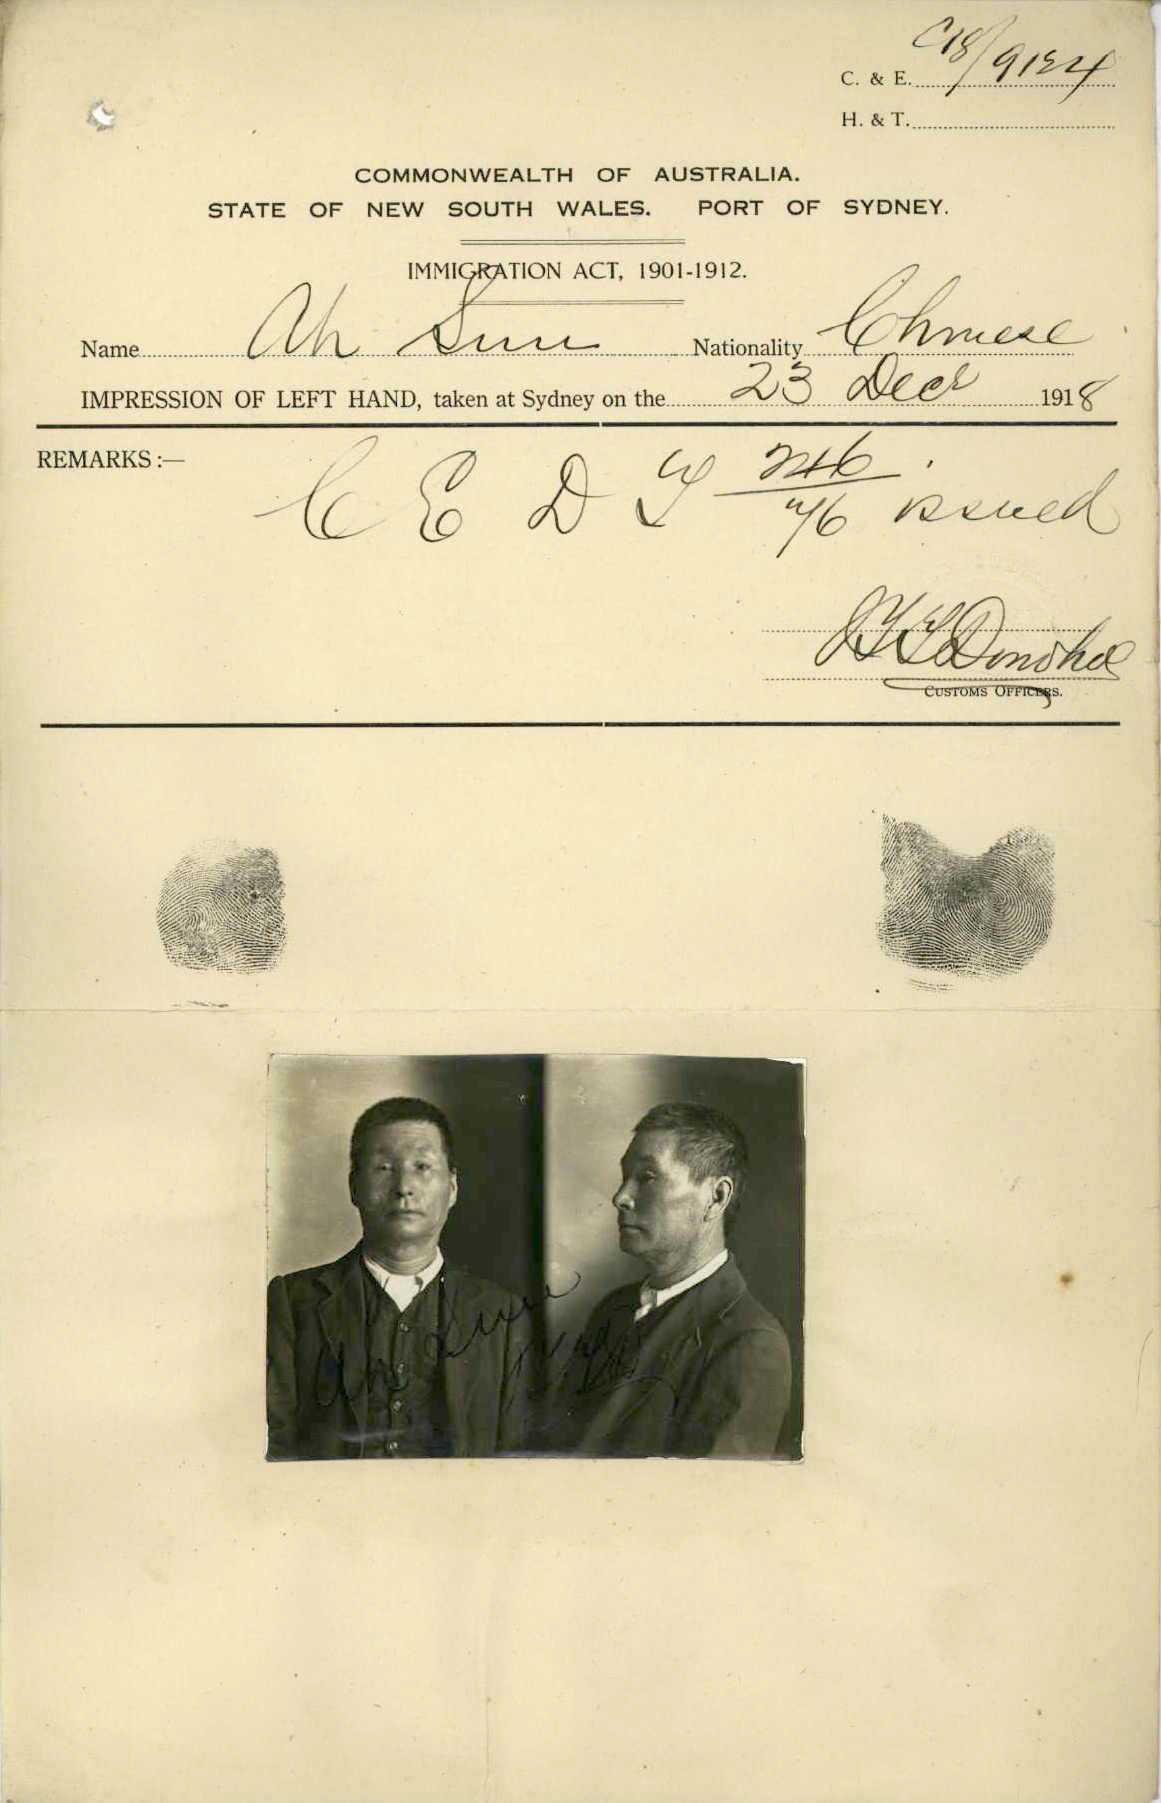 C. & E. C18/9124
H. & T.
COMMONWEALTH OF AUSTRALIA.
STATE OF NEW SOUTH WALES. PORT OF SYDNEY.
IMMIGRATION ACT, 1901-1912.
Name Ah Sun Nationality Chinese
IMPRESSION OF LEFT HAND, taken at Sydney on the 23 Decr 1918
REMARKS:— C E D T 246/76 issued
Donohoe
CUSTOMS OFFICERS.
Ah Sun